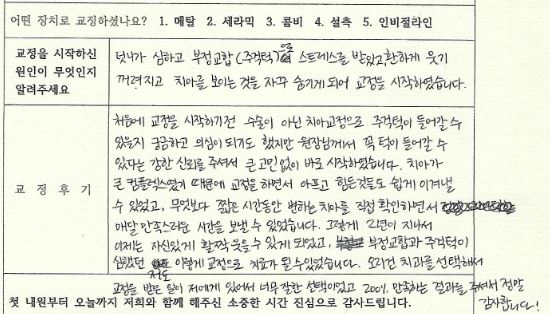 어떤 장치로 교정하셨나요? 1. 메탈 2. 세라믹 3. 콤비 4. 설측 5. 인비절라인
교정을 시작하신
원인이 무엇인지
알려주세요
덧니가 심하고 부정교합(주걱턱)으로 스트레스를 받았고 환하게 웃기
꺼려지고 치아를 보이는 것을 자꾸 숨기게 되어 교정을 시작하였습니다.
교 정 후 기
처음에 교정을 시작하기전 수술이 아닌 치아교정으로 주걱턱이 들어갈 수
있을지 궁금하고 의심이 되기도 했지만 원장님께서 꼭 턱이 들어갈 수
있다는 강한 신뢰를 주셔서 큰 고민없이 바로 시작하였습니다. 치아가
큰 컴플렉스였기 때문에 교정을 하면서 아프고 힘든것들도 쉽게 이겨낼
수 있었고, 무엇보다 짧은 시간동안 변하는 치아를 직접 확인하면서
매달 만족스러운 시간을 보낼 수 있었습니다. 그렇게 2년이 지나서
이제는 자신있게 활짝 웃을 수 있게 되었고, 부정교합과 주걱턱이
심했던 저도 이렇게 교정으로 치료가 될 수 있었습니다. 오리건 치과를 선택해서
교정을 받은 일이 저에게 있어서 너무 잘한 선택이었고 200% 만족하는 결과를 주셔서 정말
감사합니다!
첫 내원부터 오늘까지 저희와 함께 해주신 소중한 시간 진심으로 감사드립니다.